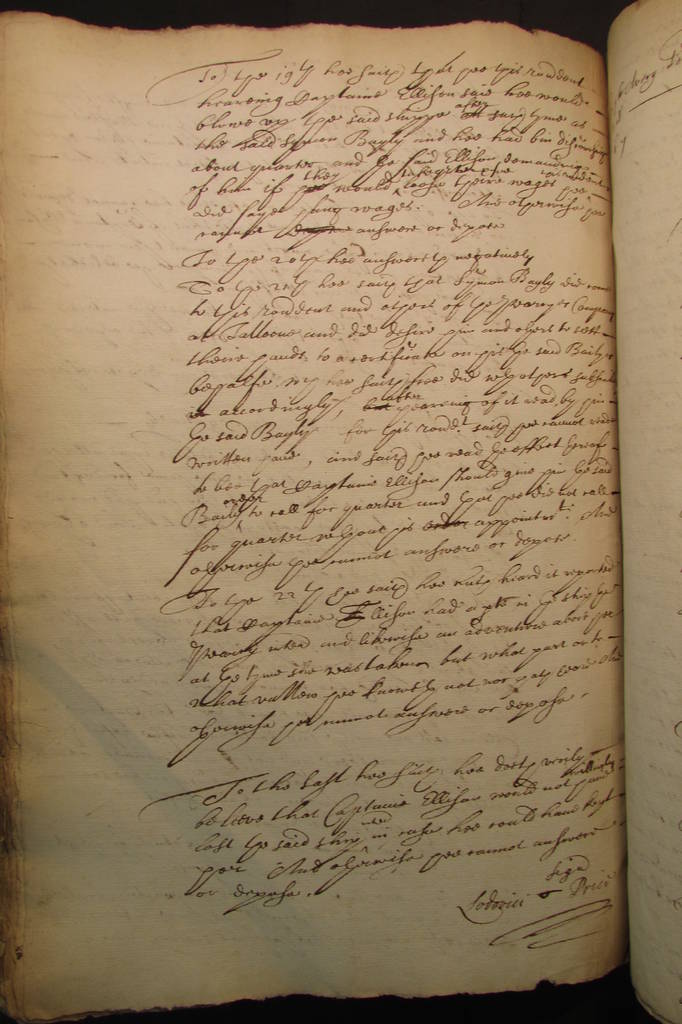 To the 19th hee saith that hee this rondent
heareing Captaine Ellison saie hee would
blowe up the said shippe after att such tyme as
the said Symon Bayly and hee had bin discoursing
about quarter and he said Ellison demanding
of him if they would loose theire wages hee
did saye wages. And otherwise hee
cannot answere or depose
To the 20th hee answereth negatively
To the 21th hee saith that Symon Bayly did come
to this rondent and others of the Company
at Talloone and did desire him and others to sett
theire hands to a certificate on his the said Bailys
behalfe, wch hee saith hee did wth others subscribe
accordingly, after heareing of it read, by him
the said Bayly for this rondt saith hee cannot reade
written hand, and saith hee read the effect thereof
to bee that Captaine Ellison should give him the said
Baily order to call for quarter and that hee did not call
for quarter wthout his order appointmt: And
otherwise hee cannot answere or depose.
To the 22th hee saith hee hath heard it reported
that Captaine Ellison had a pte in the ship the
interr and likewise an adventure abord her
at the tyme she was taken but what part or to
what vallew hee knoweth not nor hath And
otherwise hee cannot answere or depose.
To the last hee saith hee doth verily
beleeve that Captaine Ellison would not willingly have
lost the said ship interr in case hee could have kept
her And otherwise hee cannot answere
or depose.
Signu
Lodovici Price